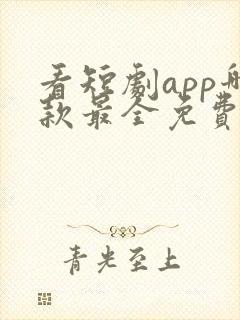 看短劇app
款最全免費
青光至上